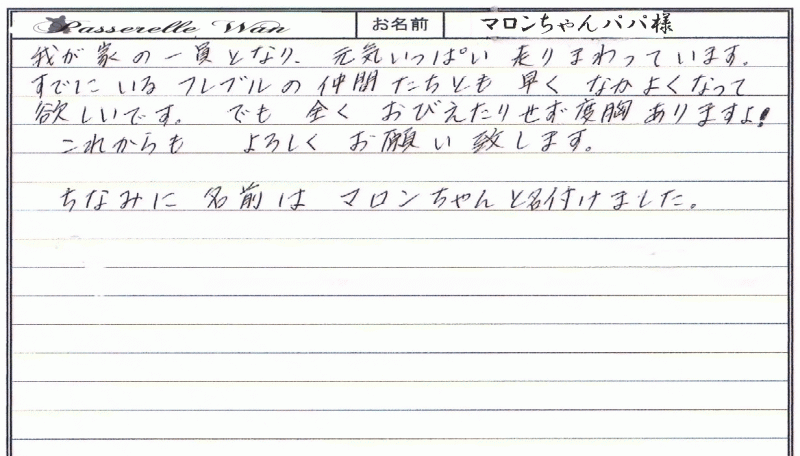 Passerelle Wan お名前 マロンちゃんパパ様
我が家の一員となり、元気いっぱい走りまわっています。
すでにいるフレブルの仲間たちとも早くなかよくなって
欲しいです。でも全くおびえたりせず度胸ありますよ!
これからもよろしくお願い致します。
ちなみに名前はマロンちゃんと名付けました。